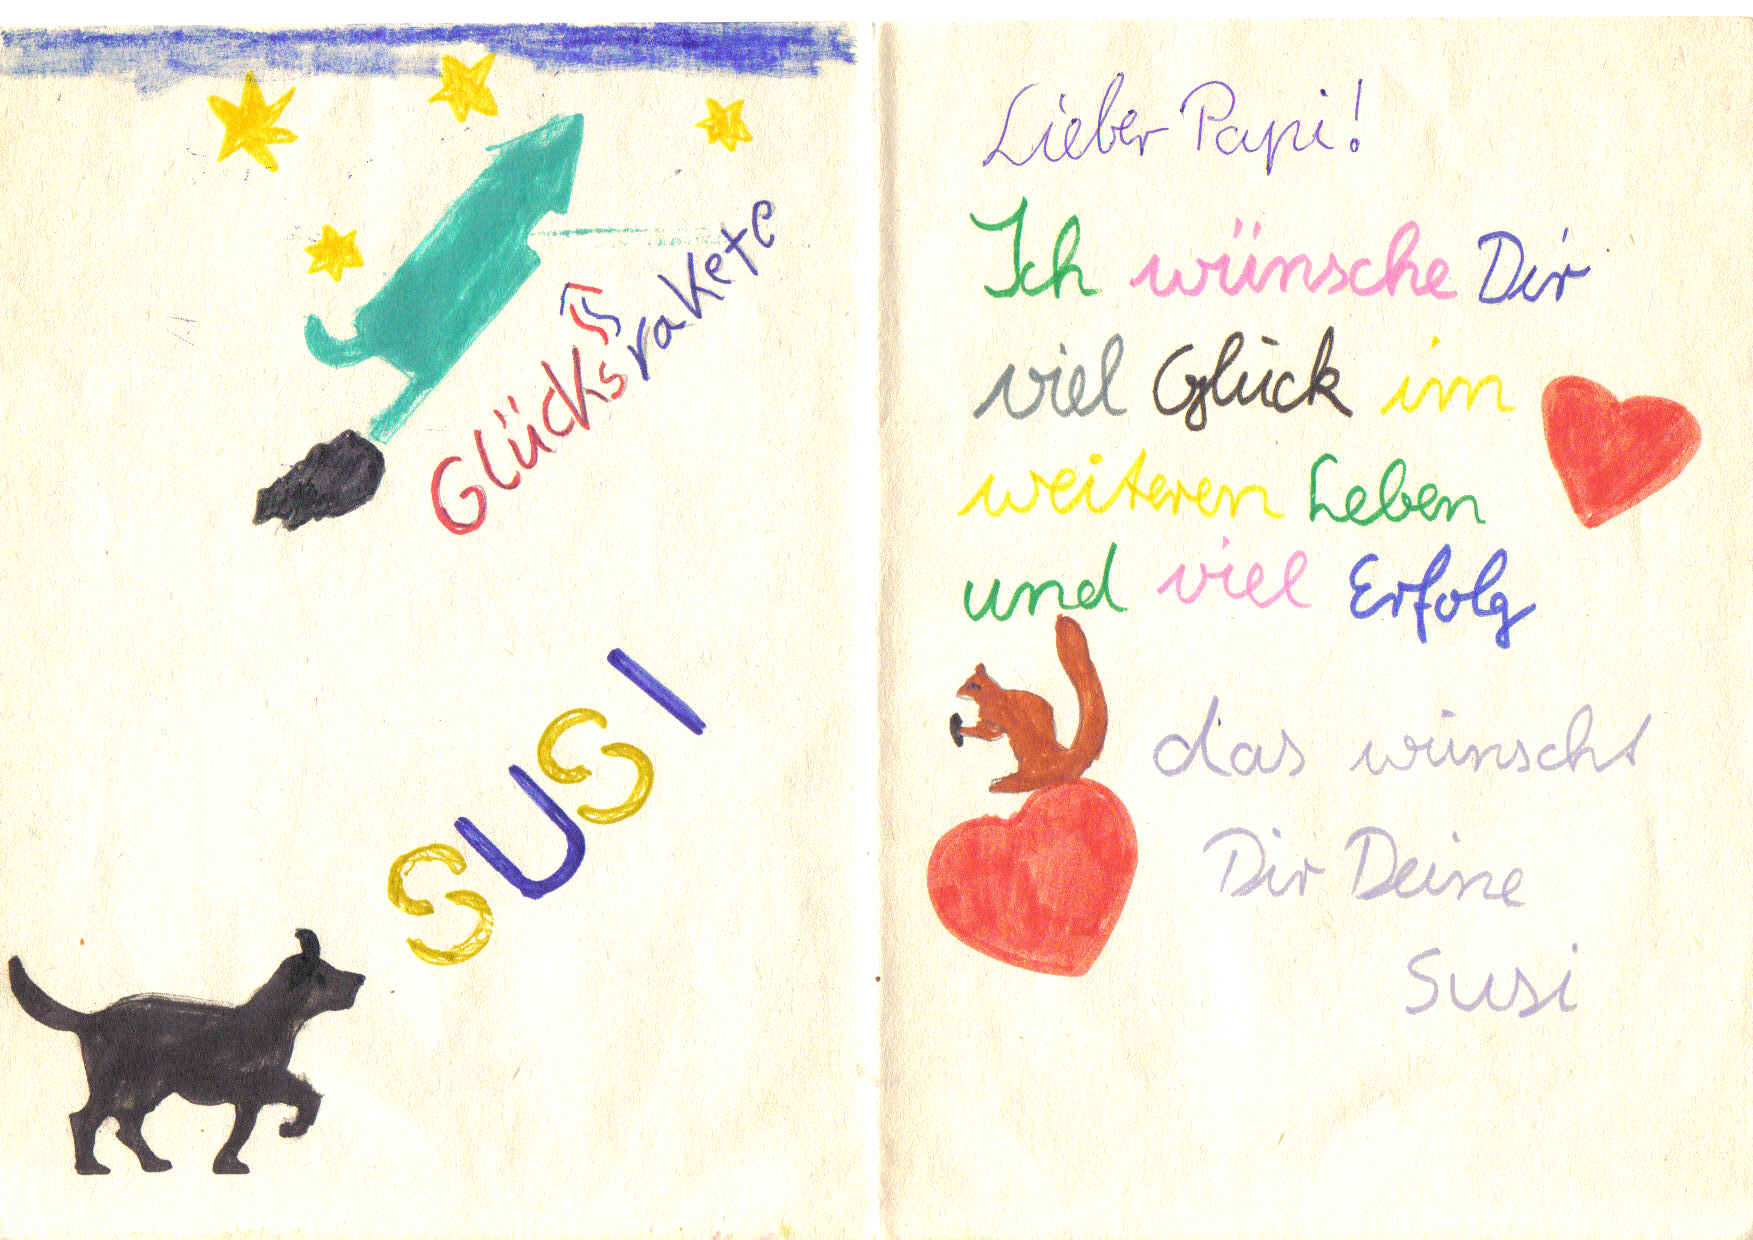 Glücksrakete
SUSI
Lieber Papi!
Ich wünsche Dir
viel Glück im
weiteren Leben
und viel Erfolg
das wünscht
Dir Deine
Susi